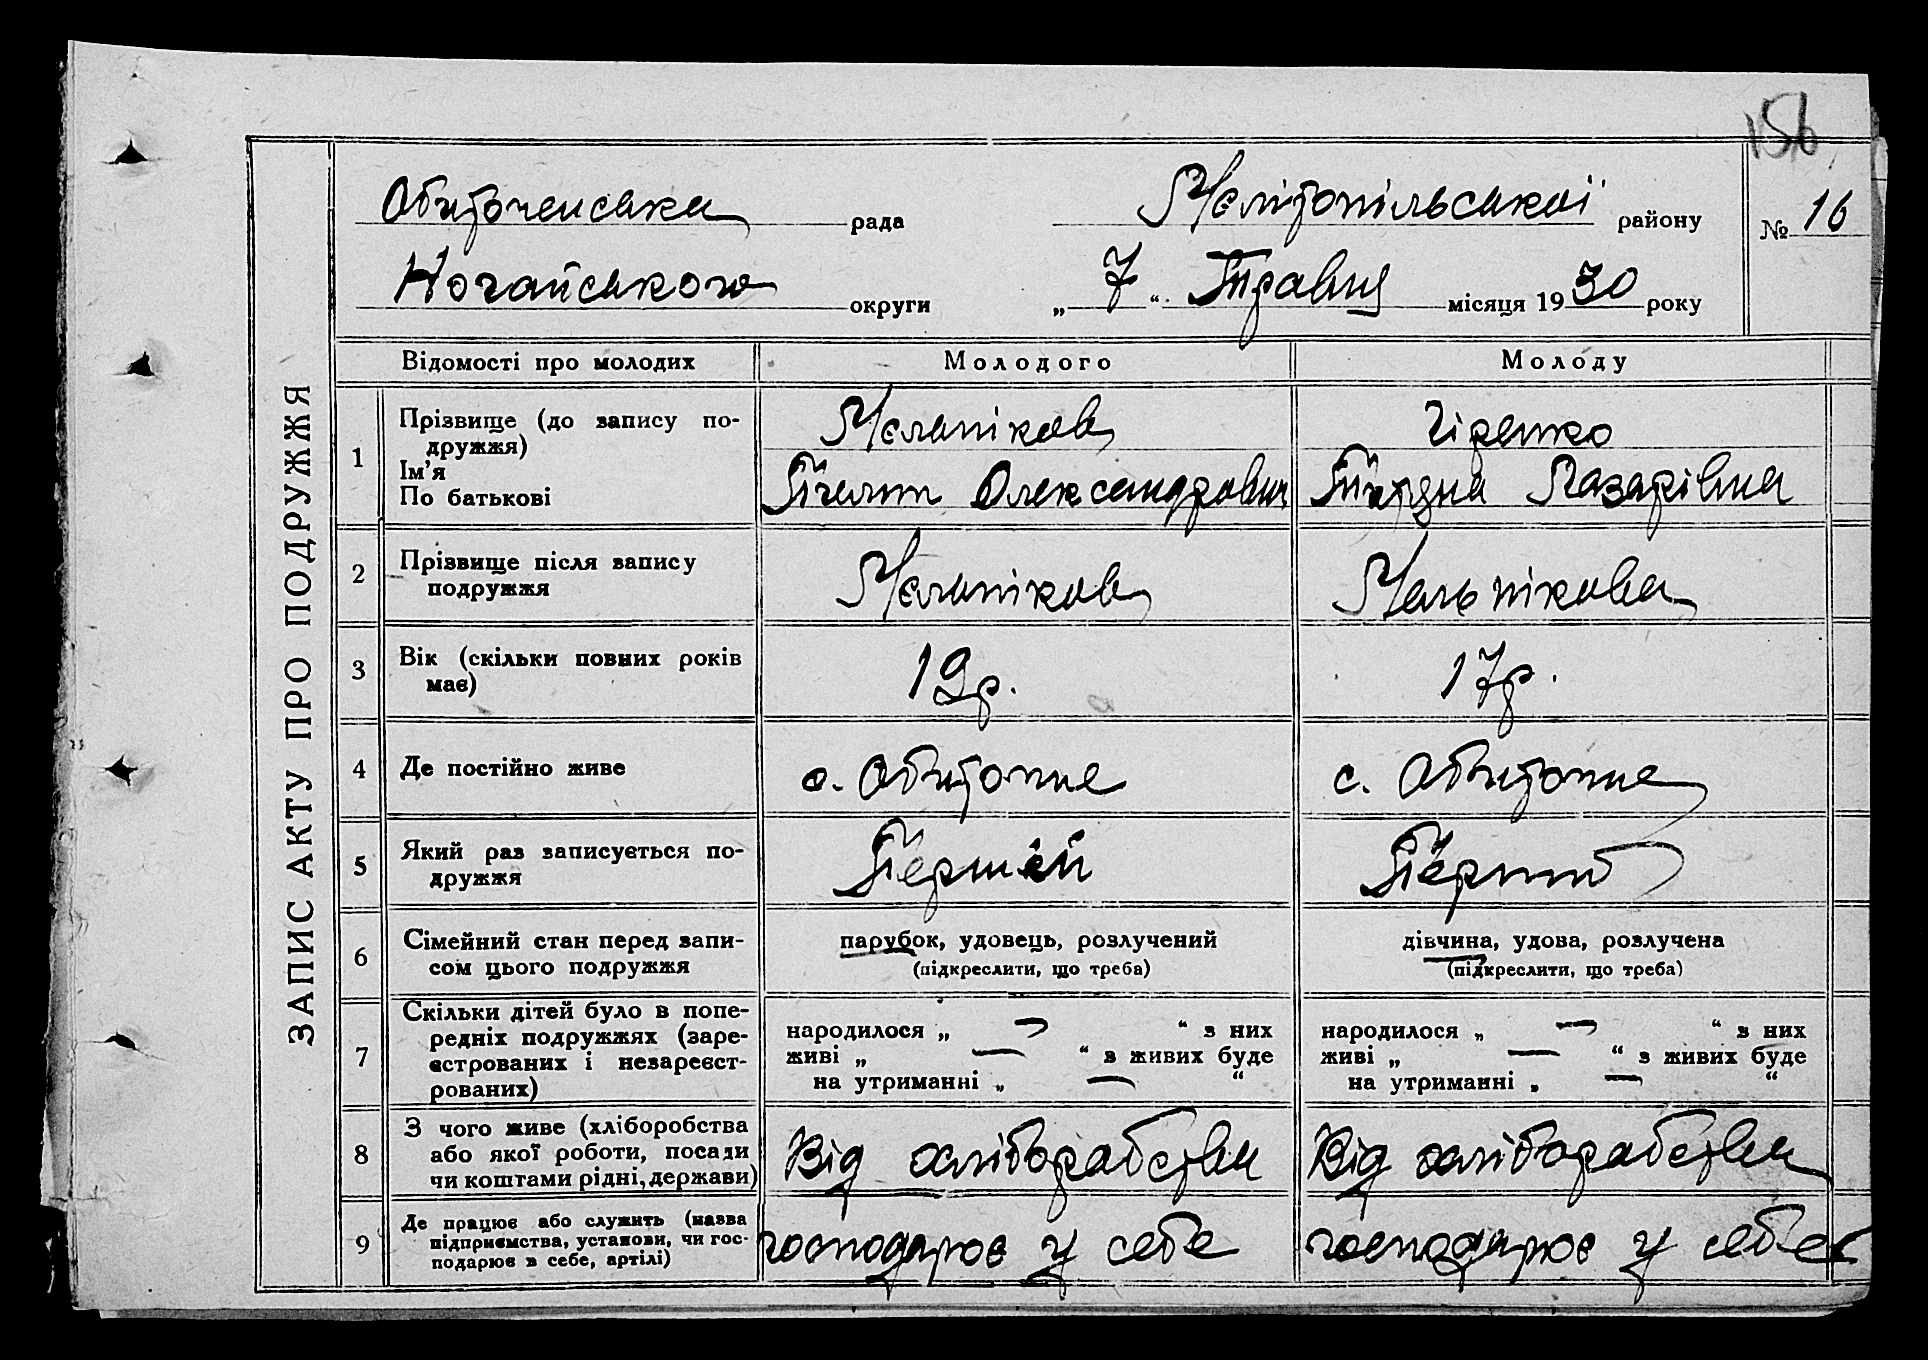 156
ЗАПИС АКТУ ПРО ПОДРУЖЖЯ
Обиточенська рада Мелітопільської району № 16
Ногайського округи „ 7 “ Травня місяця 1930 року
Відомості про молодих Молодого Молоду
1 Прізвище (до запису по-
дружжя)
Ім'я
По батькові
Мєльніков
Олександрович
Гіренко
Тетяна Лазарівна
2 Прізвище після запису
подружжя
Мєльніков
Мельнікова
3 Вік (скільки повних років
має)
19р.
17р.
4 Де постійно живе
с. Обиточне
с. Обиточне
5 Який раз записується по-
дружжя
Перший
6 Сімейний стан перед запи-
сом цього подружжя
парубок, удовець, розлучений
(підкреслити, що треба)
дівчина, удова, розлучена
(підкреслити, що треба)
7 Скільки дітей було в попе-
редніх подружжях (заре-
єстрованих і незареєст-
рованих)
народилося „ — “ з них
живі „ — “ з живих буде
на утриманні „ — “
народилося „ — “ з них
живі „ — “ з живих буде
на утриманні „ — “
8 З чого живе (хліборобства
або якої роботи, посади
чи коштами рідні, держави)
Від хліборабства
Від хліборабства
9 Де працює або служить (назва
підприємства, установи, чи гос-
подарює в себе, артілі)
господарює у себе
господарює у себе